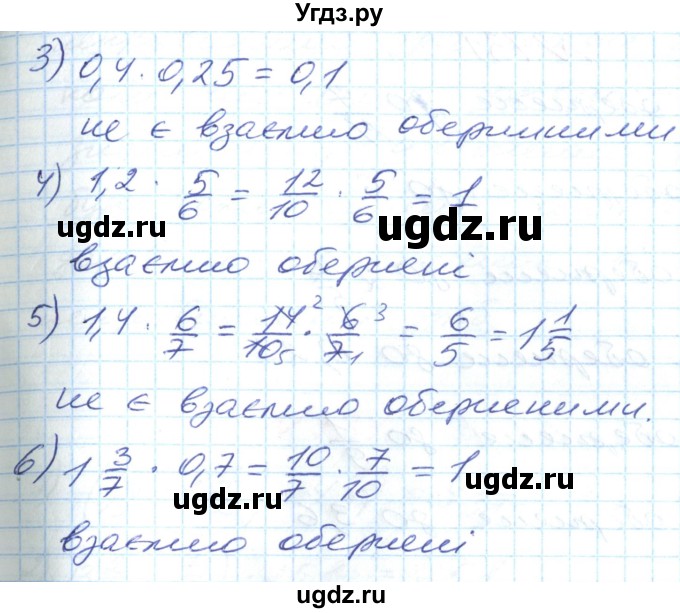 Угдз.ру
3) 0,4 · 0,25 = 0,1
не є взаємно оберненими
4) 1,2 · 5/6 = 12/10 · 5/6 = 1
ugdz.ru ugdz.ru
взаємно обернені
5) 1,4 · 6/7 = 14²/10₅ · 6³/7₁ = 6/5 = 1 1/5
не є взаємно оберненими.
6) 1 3/7 · 0,7 = 10/7 · 7/10 = 1
ugdz.ru ugdz.ru
взаємно обернені
ugdz.ru